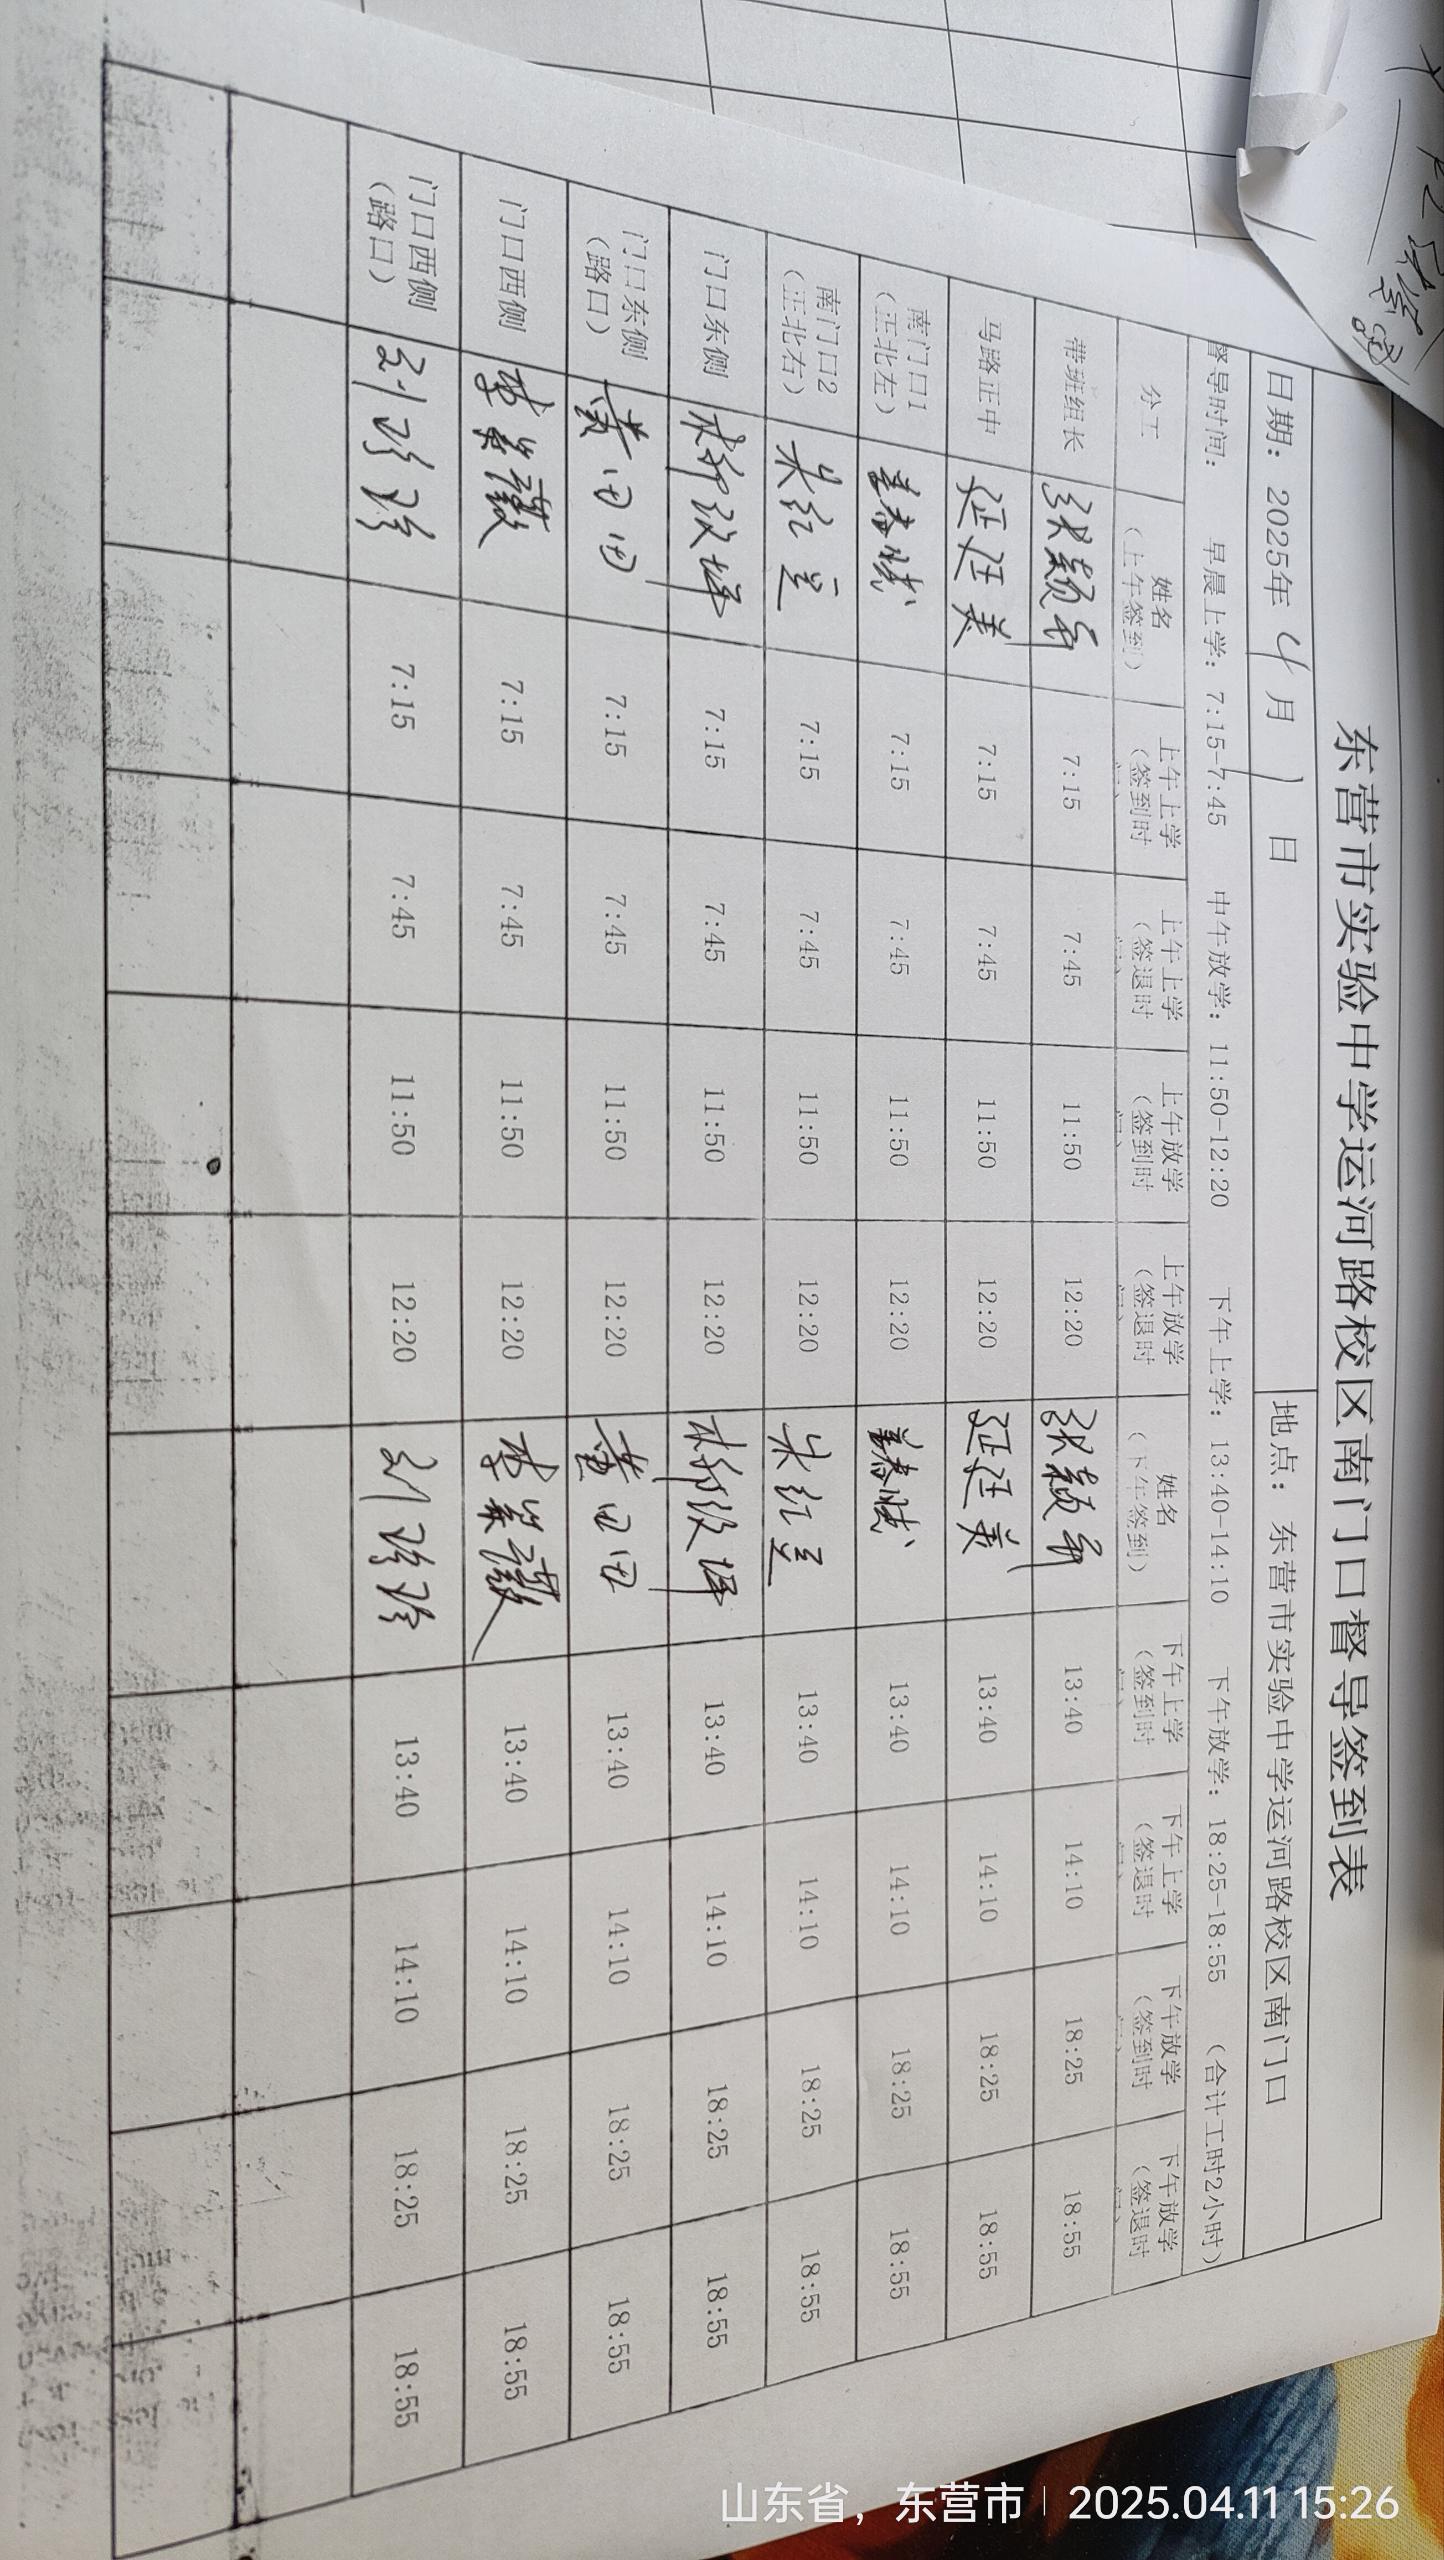 东营市实验中学运河路校区南门口督导签到表
日期：2025年 4月 1日 地点：东营市实验中学运河路校区南门口
督导时间： 早晨上学：7:15-7:45 中午放学：11:50-12:20 下午上学：13:40-14:10 下午放学：18:25-18:55 （合计工时2小时）
分工 姓名（上午签到） 上午上学（签到时 上午上学（签退时 上午放学（签到时 上午放学（签退时 姓名（下午签到） 下午上学（签到时 下午上学（签退时 下午放学（签到时 下午放学（签退时
带班组长 7:15 7:45 11:50 12:20 13:40 14:10 18:25 18:55
马路正中 7:15 7:45 11:50 12:20 13:40 14:10 18:25 18:55
南门口1（正北左） 7:15 7:45 11:50 12:20 13:40 14:10 18:25 18:55
南门口2（正北右） 7:15 7:45 11:50 12:20 13:40 14:10 18:25 18:55
门口东侧 7:15 7:45 11:50 12:20 13:40 14:10 18:25 18:55
门口东侧（路口） 黄田田 7:15 7:45 11:50 12:20 黄田田 13:40 14:10 18:25 18:55
门口西侧 李紫薇 7:15 7:45 11:50 12:20 李紫薇 13:40 14:10 18:25 18:55
门口西侧（路口） 刘珍珍 7:15 7:45 11:50 12:20 刘珍珍 13:40 14:10 18:25 18:55
山东省，东营市 2025.04.11 15:26